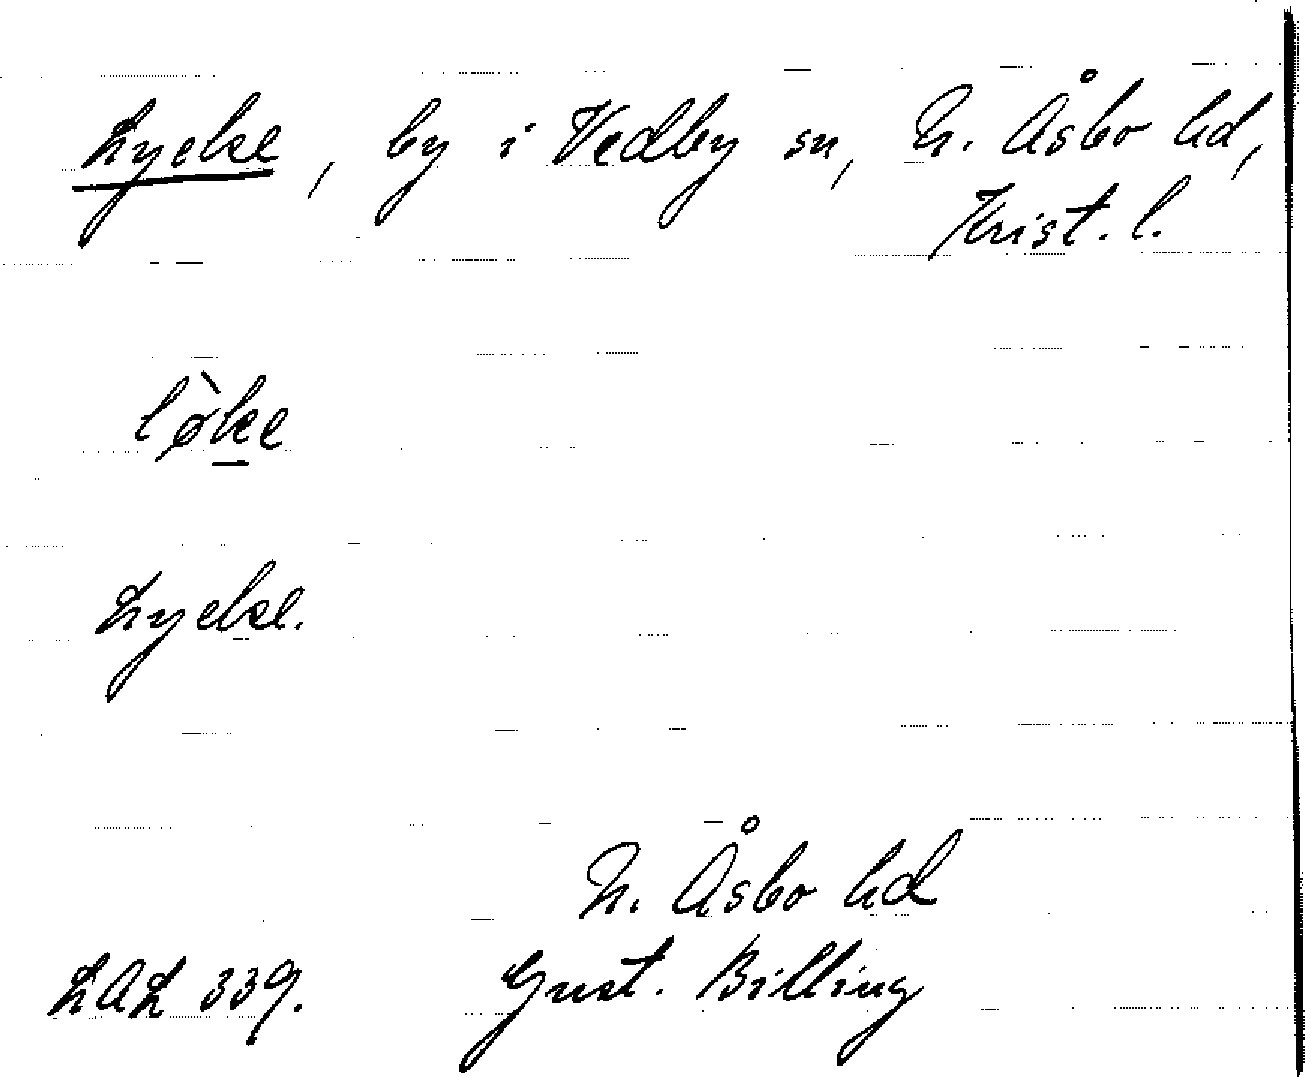 Lycke, by i Vedby sn, N. Åsbo hd,
Krist. l.
lø̀ke
Lycke.
N. Åsbo hd
LAL 339. Gust. Billing